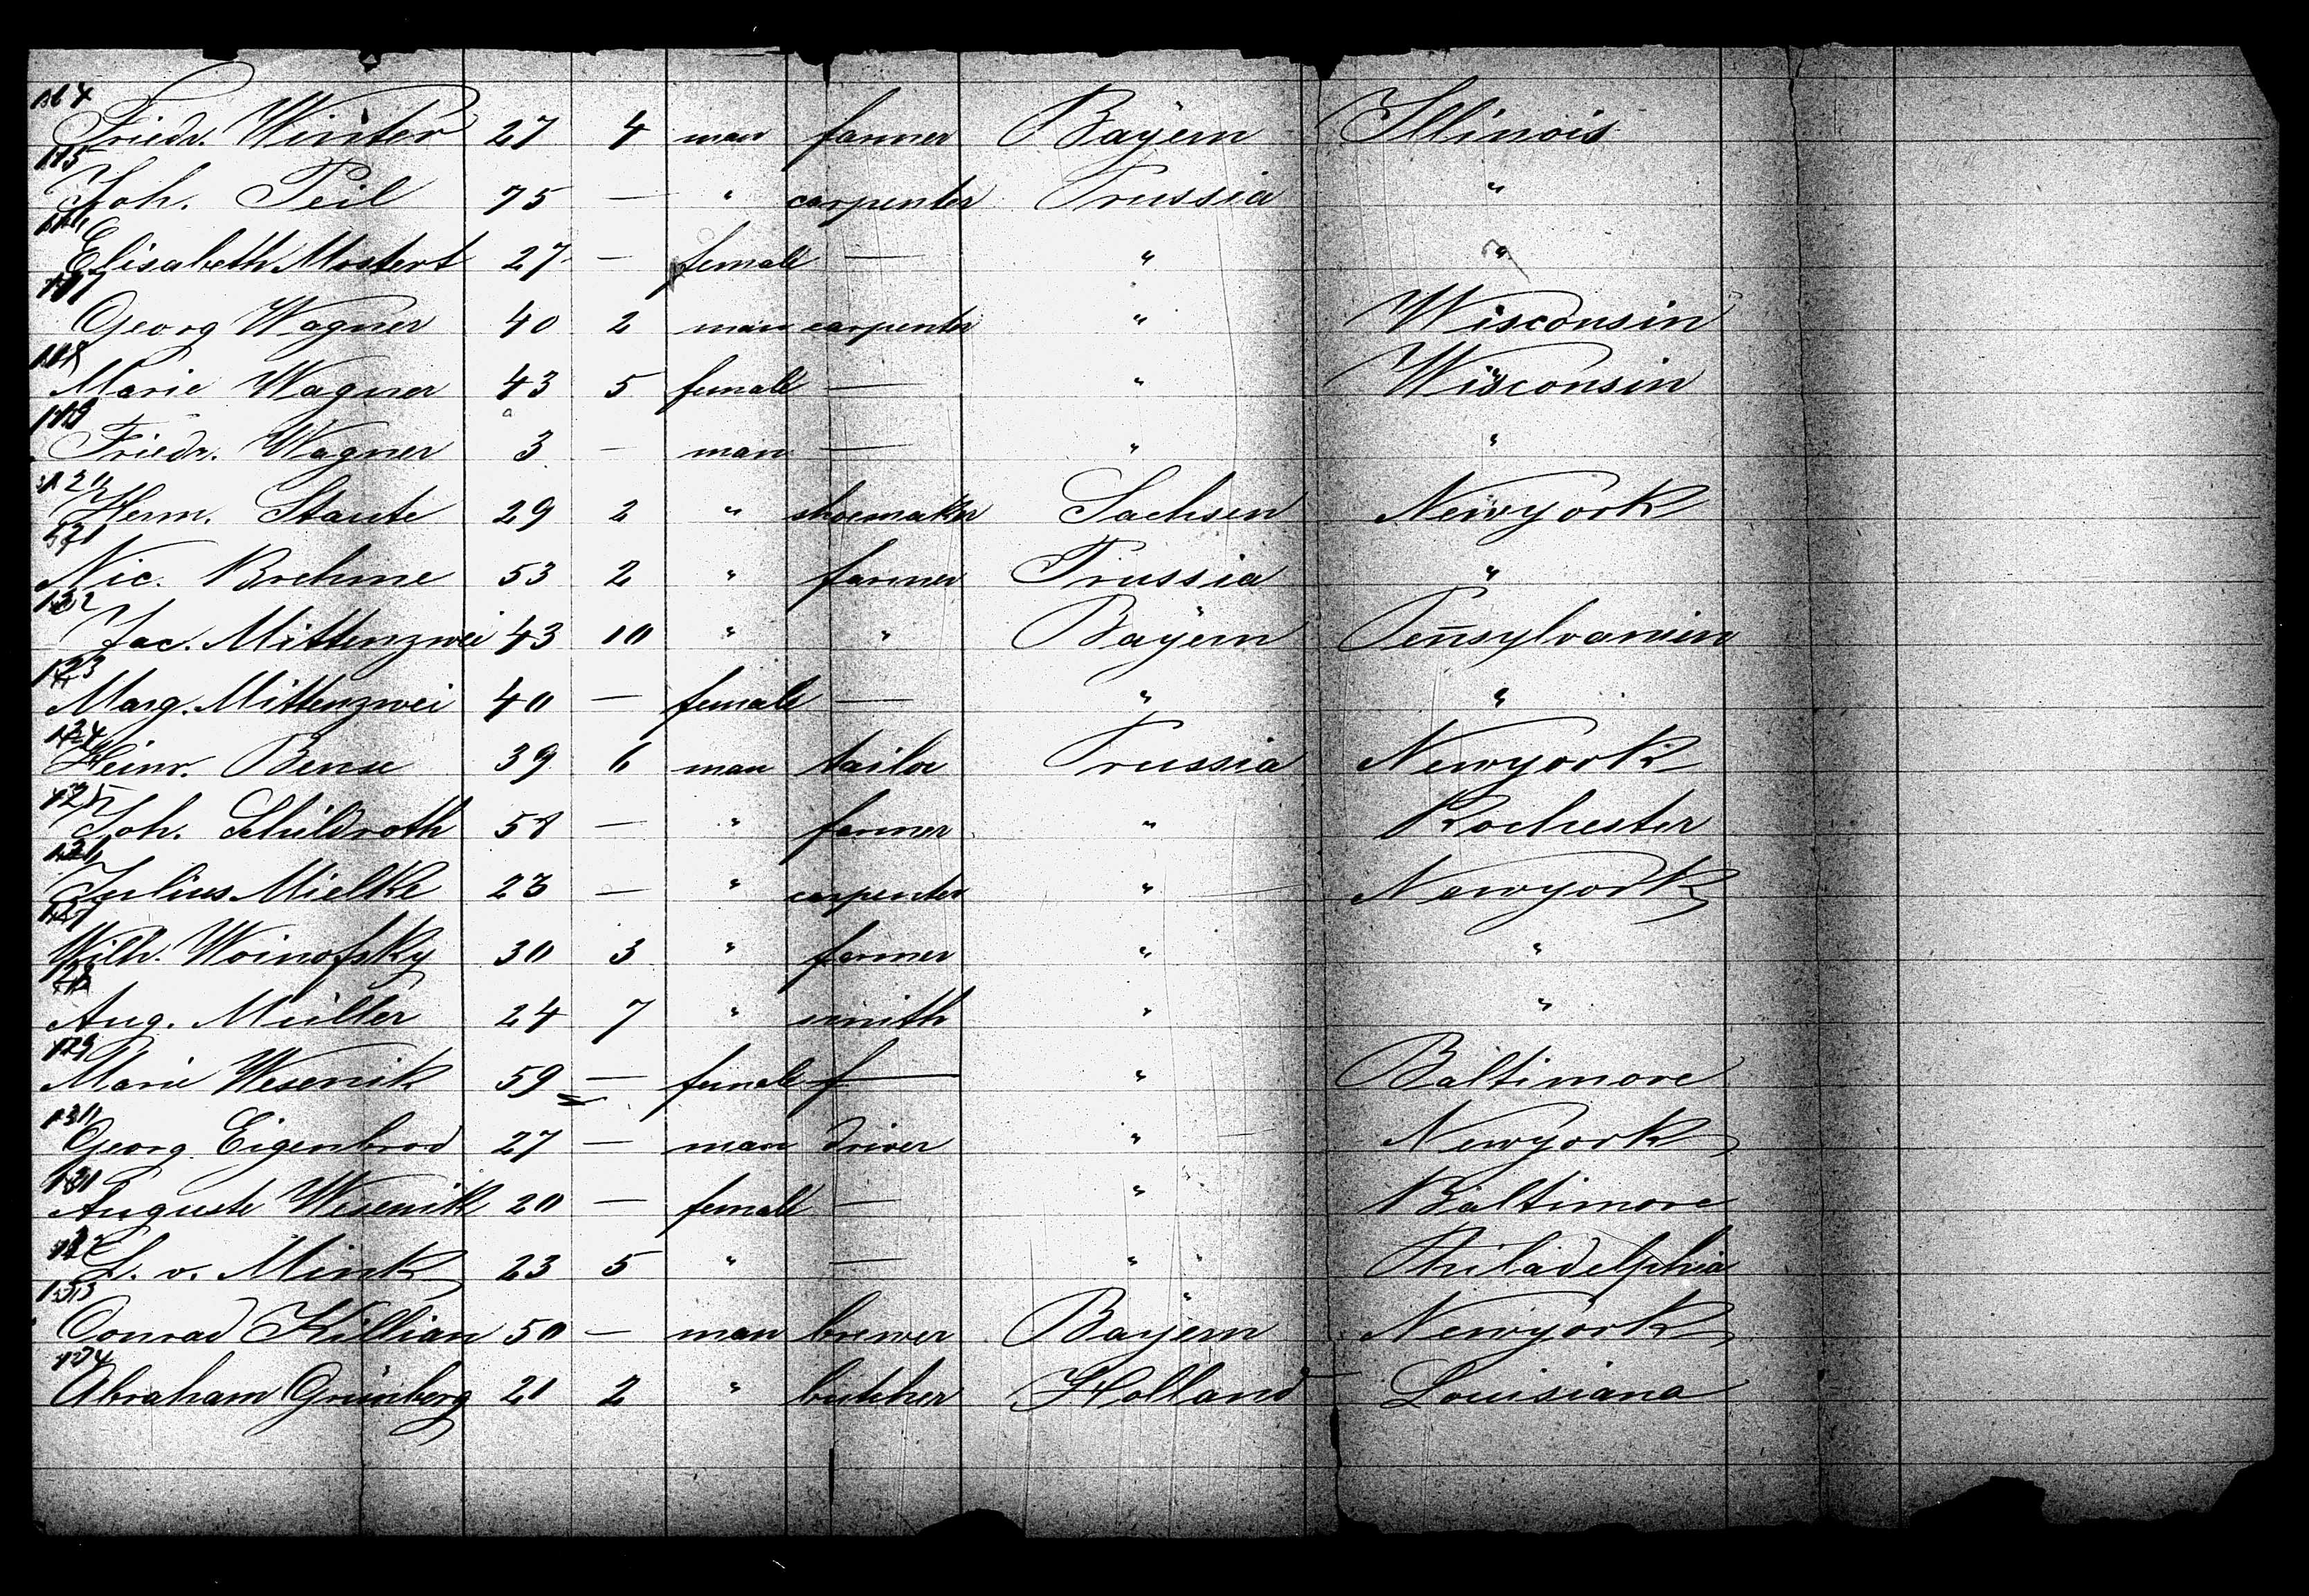 114 Friedr. Winter 27 4 man farmer Bayern Illinois
115 Joh. Peil 75 — " carpenter Prussia "
116 Elisabeth Mostert 27 — female — " "
117 Georg Wagner 40 2 man carpenter " Wisconsin
118 Marie Wagner 43 5 female — " Wisconsin
119 Friedr. Wagner 3 — man — " "
120 Herm. Staute 29 2 " shoemaker Sachsen Newyork
121 Nic. Brehme 53 2 " farmer Prussia "
122 Jac. Mittenzwei 43 10 " " Bayern Pen̄sylvanien
123 Marg. Mittenzwei 40 — female — " "
124 Heinr. Bense 39 6 man tailor Prussia Newyork
125 Joh. Schildroth 58 — " farmer " Rochester
126 Julius Mielke 23 — " carpenter " Newyork
127 Wilh. Woinofsky 30 3 " farmer " "
128 Aug. Müller 24 7 " smith " "
129 Marie Wesenik 59 — female — " Baltimore
130 Georg Eigenbrod 27 — man driver " Newyork
131 Auguste Wesenik 20 — female — " Baltimore
132 L. v. Mink 23 5 " — " Philadelphia
133 Conrad Killian 50 — man brewer Bayern Newyork
134 Abraham Grünberg 21 2 " butcher Holland Louisiana